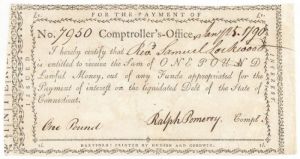 FOR THE PAYMENT OF
No. 7950 Comptroller's-Office, Jany 15 1790
I hereby certify that Revd. Samuel Lockwood
is entitled to receive the Sum of ONE POUND
Lawful Money, out of any Funds appropriated for the
Payment of interest on the liquidated Debt of the State of
Connecticut.
One Pound Ralph Pomeroy Compt.
HARTFORD: PRINTED BY HUDSON AND GOODWIN.
INTEREST